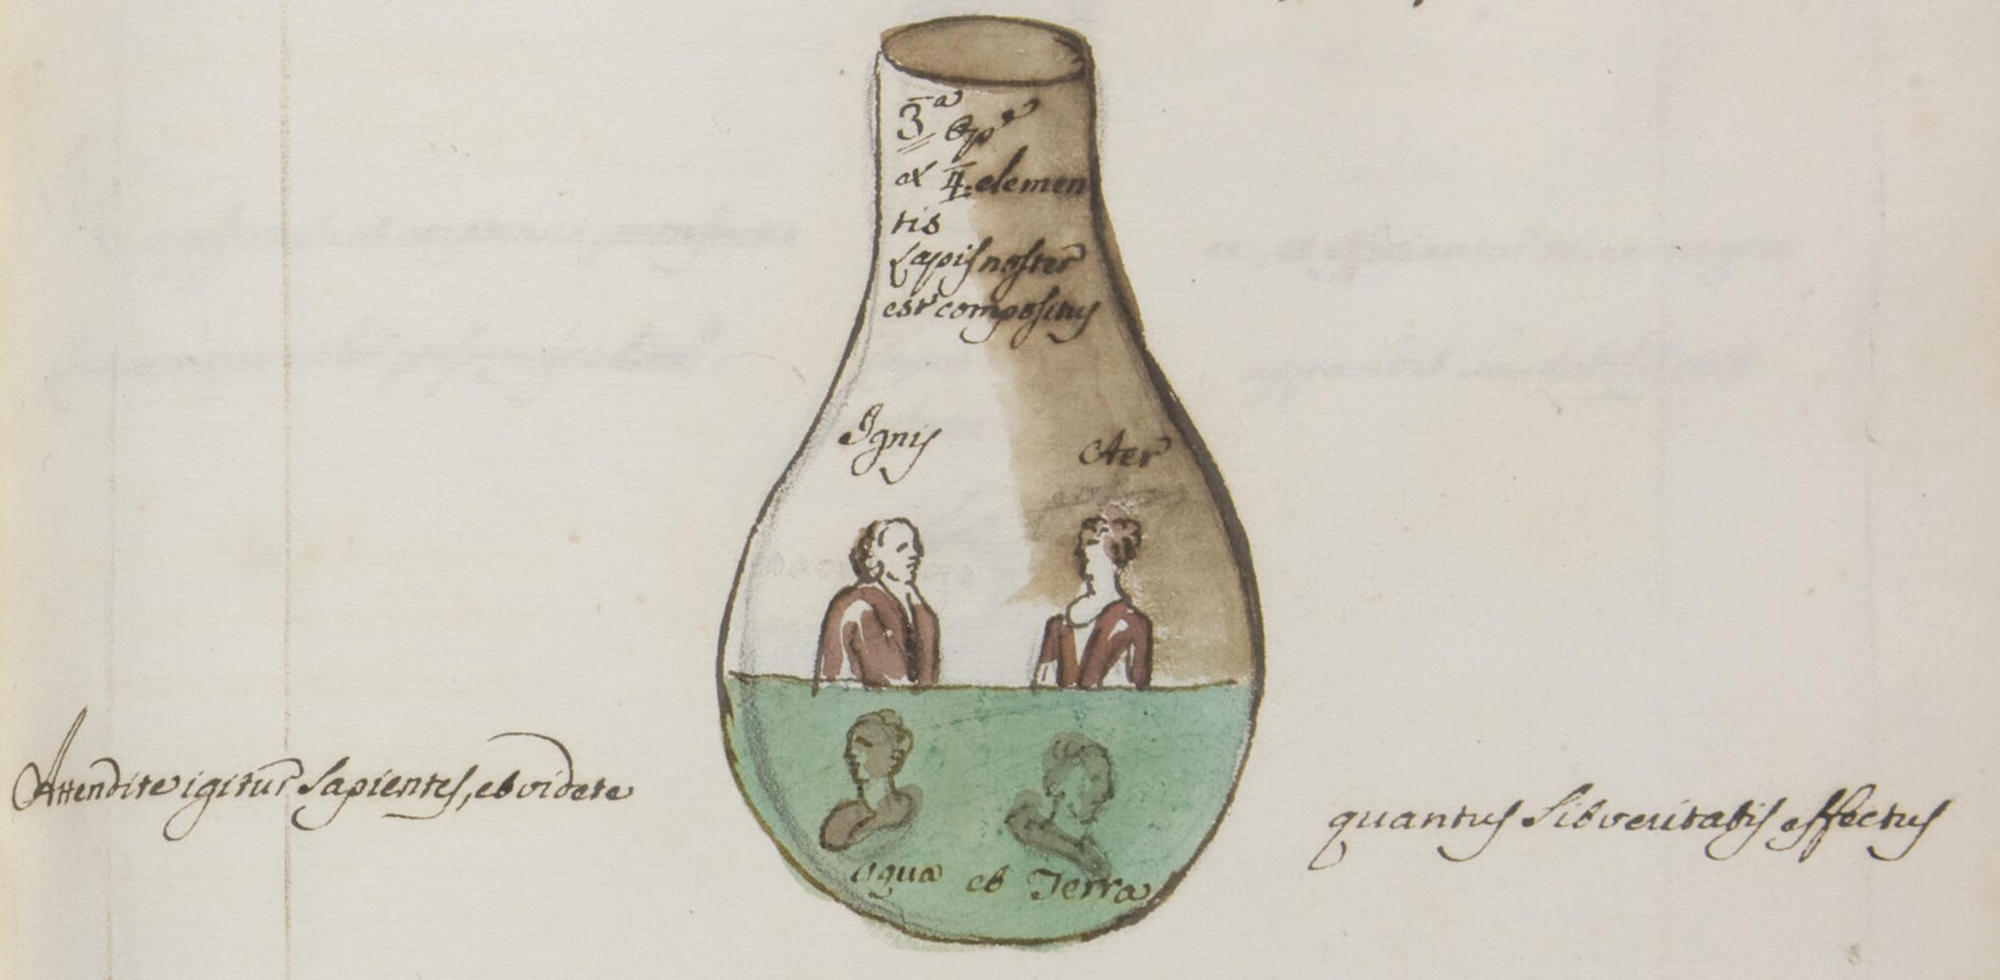 3ᵃ Opᵒ
ex 4. elemen
tis
Lapis noster
est compositus
Ignis
Aer
Attendite igitur sapientes, et videte
quantus sit veritatis effectus
aqua et Terra